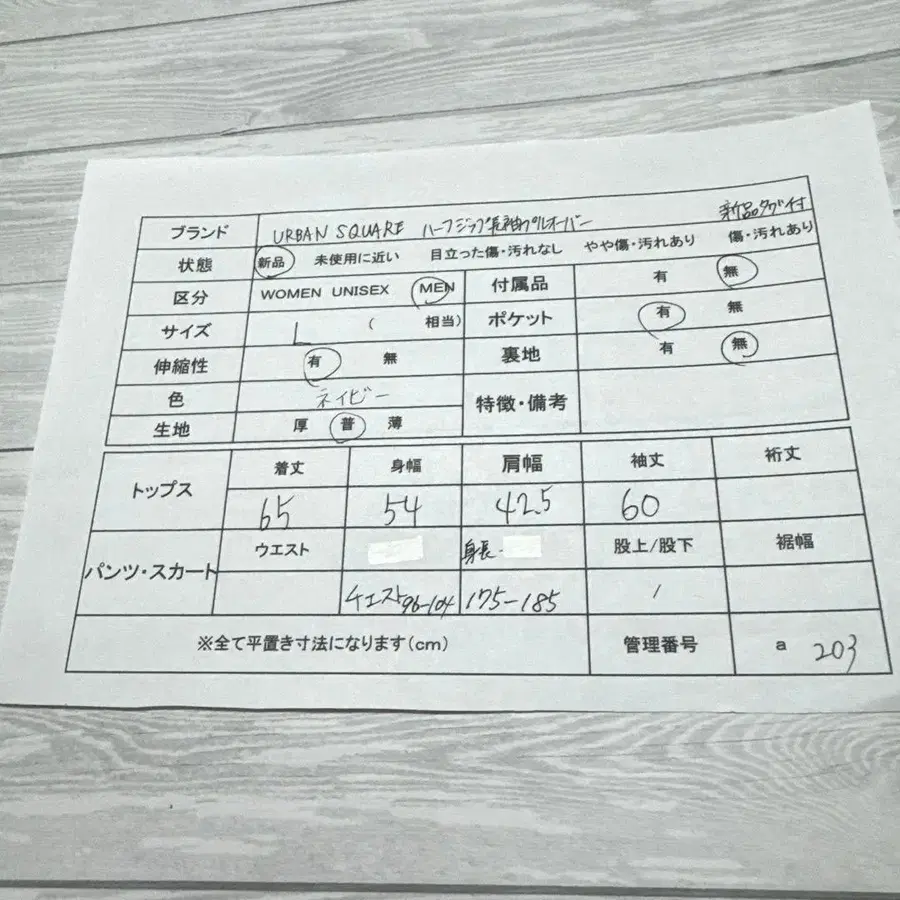 ブランド URBAN SQUARE ハーフジップ長袖プルオーバー 新品タグ付
状態 新品 未使用に近い 目立った傷・汚れなし やや傷・汚れあり 傷・汚れあり
区分 WOMEN UNISEX MEN 付属品 有 無
サイズ L ( 相当) ポケット 有 無
伸縮性 有 無 裏地 有 無
色 ネイビー 特徴・備考
生地 厚 普 薄
トップス 着丈 身幅 肩幅 袖丈 裄丈
65 54 42.5 60
パンツ・スカート ウエスト 身長 股上/股下 裾幅
チェスト96-104 175-185 /
※全て平置き寸法になります(cm) 管理番号 a 203